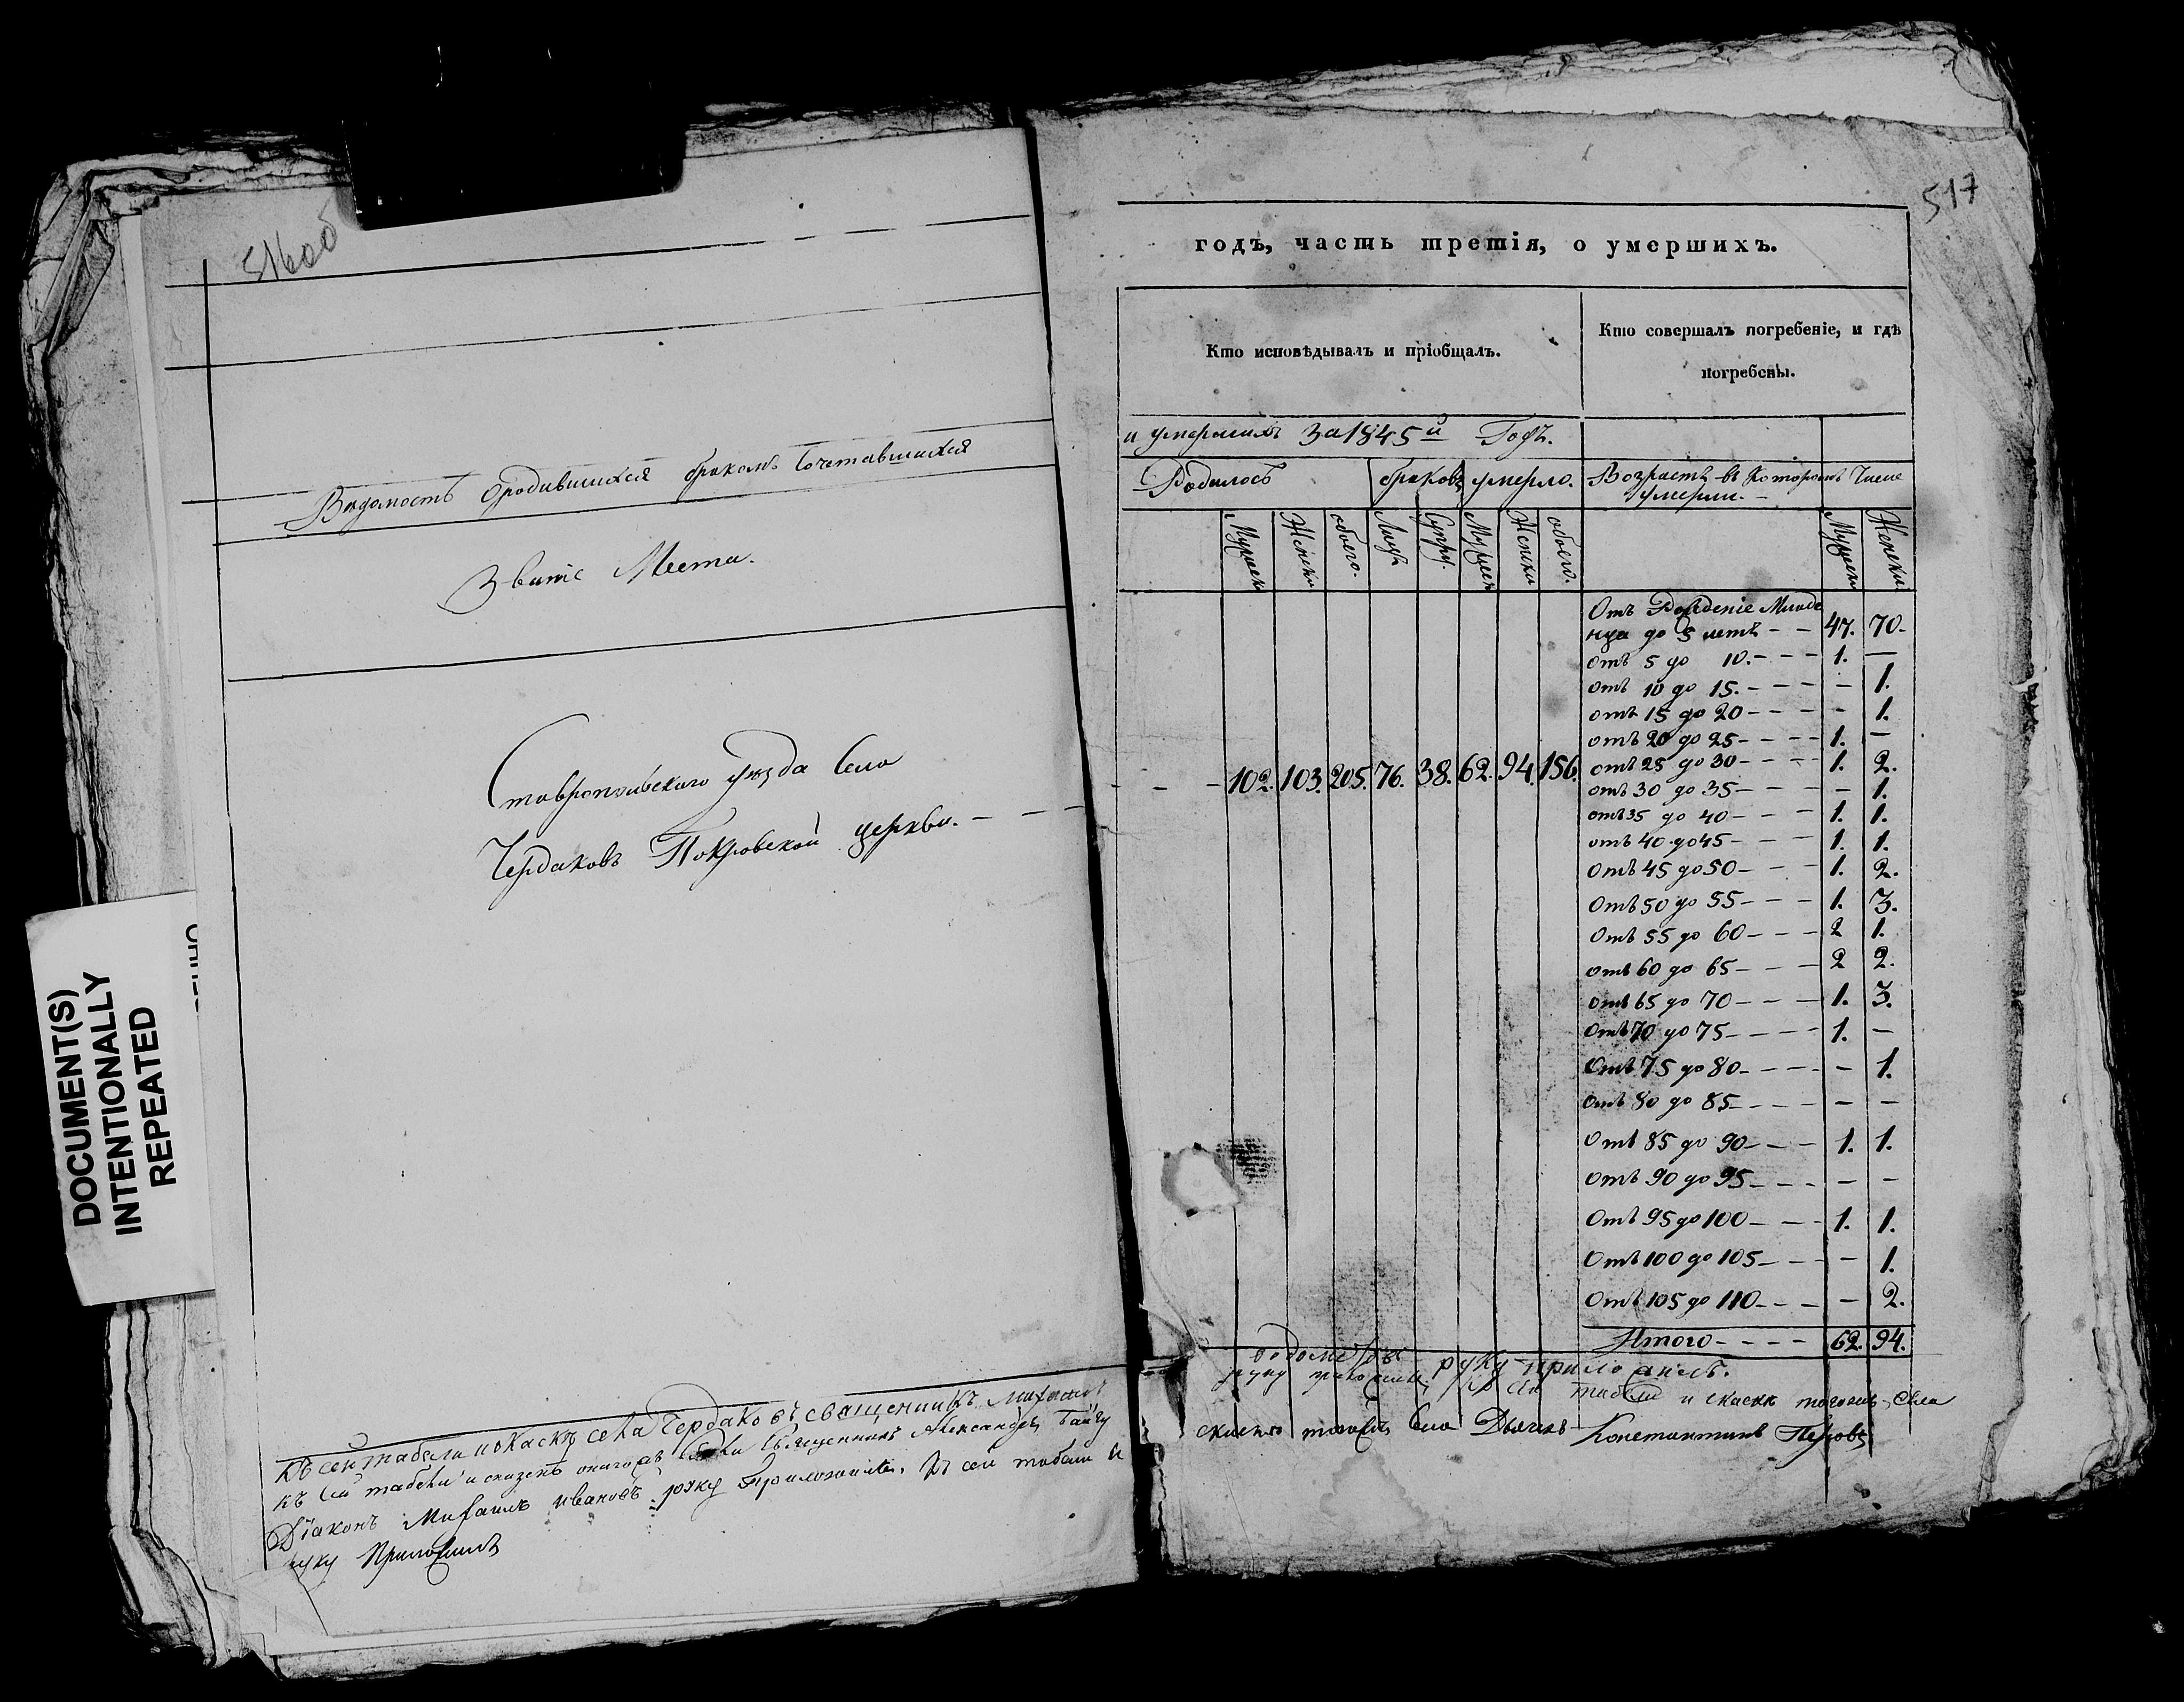 516об
Ведомость о родившихся браком сочетавшихся
Звание Места.
Ставропольского уѣзда Села
Чердаковъ Покровской церкви. — —
къ сей табели и окаскѣ села Чердаковъ священникъ
къ сей табели и сказкѣ онагожъ села священникъ Александръ
Діаконъ Михаилъ Ивановъ руку приложилъ. Къ сей табели и
руку Приложилъ
DOCUMENT(S)
INTENTIONALLY
REPEATED
517
годъ, часть третія, о умершихъ.
Кто исповѣдывалъ и пріобщалъ.
Кто совершалъ погребеніе, и гдѣ
погребены.
и умершихъ За 1845й Годъ.
Родилось браковъ умерло. Возрастъ въ Которомъ Числе
умерли. —
Мужеск Женски обоего. Лицъ Супру. Мужеск Женски обоего. Мужеск Женски
Отъ Рождение Младе
нца до 5 летъ — — 47. 70.
отъ 5 до 10. — — — 1. —
отъ 10 до 15. — — — — 1.
отъ 15 до 20 — — — — 1.
отъ 20 до 25 — — — 1. —
— — 102. 103. 205. 76. 38. 62. 94. 156. отъ 25 до 30 — — — 1. 2.
отъ 30 до 35 — — — — 1.
отъ 35 до 40 — — — 1. 1.
отъ 40 до 45 — — — 1. 1.
Отъ 45 до 50 — — — 1. 2.
Отъ 50 до 55 — — — 1. 3.
Отъ 55 до 60 — — — 2 1.
отъ 60 до 65 — — — 2 2.
отъ 65 до 70 — — — 1. 3.
Отъ 70 до 75 — — — 1. —
Отъ 75 до 80 — — — — 1.
Отъ 80 до 85 — — — — —
Отъ 85 до 90 — — — 1. 1.
Отъ 90 до 95 — — — — —
Отъ 95 до 100 — — — 1. 1.
Отъ 100 до 105 — — — — 1.
Отъ 105 до 110 — — — — 2.
Итого — — — — 62. 94.
руку приложилъ.
руку приложилъ табели и скаске тогожъ села
скаске тогожъ Села Дьячекъ Константинъ Перовъ